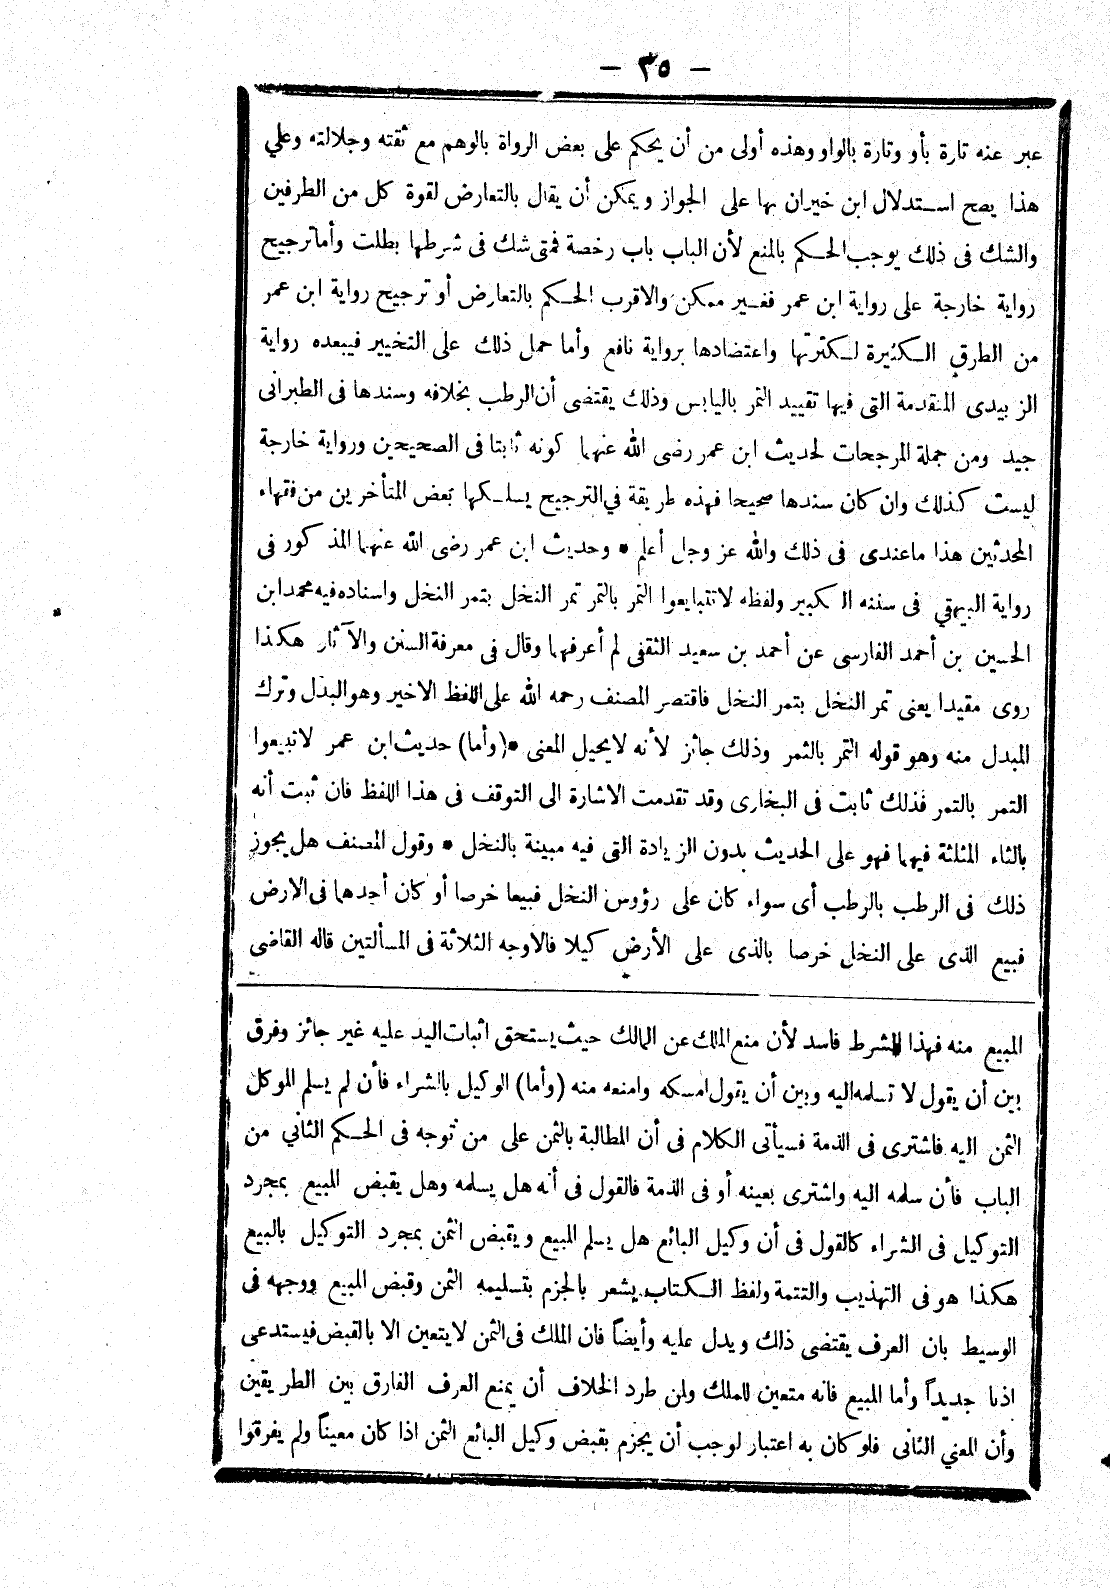 – ٣٥ –
عبر عنه تارة بأو وتارة بالواو وهذه أولى من أن يحكم على بعض الرواة بالوهم مع ثقته وجلالته وعلي
هذا يصح استدلال ابن خيران بها على الجواز ويمكن أن يقال بالتعارض لقوة كل من الطرفين
والشك فى ذلك يوجب الحكم بالمنع لأن الباب باب رخصة فمتى شك فى شرطها بطلت وأما ترجيح
رواية خارجة على رواية ابن عمر فغير ممكن والاقرب الحكم بالتعارض أو ترجيح رواية ابن عمر
من الطرق الكثيرة لكثرتها واعتضادها برواية نافع وأما حمل ذلك على التخيير فيبعده رواية
الزبيدى المتقدمة التى فيها تقييد التمر باليابس وذلك يقتضى أن الرطب بخلافه وسندها فى الطبرانى
جيد ومن جملة المرجحات لحديث ابن عمر رضى الله عنهما كونه ثابتا فى الصحيحين ورواية خارجة
ليست كذلك وان كان سندها صحيحا فهذه طريقة في الترجيح يسلكها بعض المتأخرين من فقهاء
المحدثين هذا ماعندى فى ذلك والله عز وجل أعلم • وحديث ابن عمر رضى الله عنهما المذكور فى
رواية البيهقي فى سننه الكبير ولفظه لا تتبايعوا الثمر بالتمر ثمر النخل بتمر النخل واسناده فيه محمد ابن
الحسين بن أحمد الفارسى عن أحمد بن سعيد الثقفى لم أعرفهما وقال فى معرفة السنن والآثار هكذا
روى مقيدا يعنى ثمر النخل بتمر النخل فاقتصر المصنف رحمه الله على اللفظ الاخير وهو البدل وترك
المبدل منه وهو قوله الثمر بالتمر وذلك جائز لأنه لا يحيل المعنى •(وأما) حديث ابن عمر لا تبيعوا
التمر بالتمر فذلك ثابت فى البخارى وقد تقدمت الاشارة الى التوقف فى هذا اللفظ فان ثبت أنه
بالثاء المثلثة فيهما فهو على الحديث بدون الزيادة التى فيه مبينة بالنخل • وقول المصنف هل يجوز
ذلك فى الرطب بالرطب أى سواء كان على رؤوس النخل فبيعا خرصا أو كان أحدهما فى الارض
فبيع الذى على النخل خرصا بالذى على الأرض كيلا فالاوجه الثلاثة فى المسألتين قاله القاضى
المبيع منه فهذا الشرط فاسد لأن منع الملك عن المالك حيث يستحق اثبات اليد عليه غير جائز وفرق
بين أن يقول لا تسلمه اليه وبين أن يقول امسكه وامنعه منه (وأما) الوكيل بالشراء فأن لم يسلم الموكل
الثمن اليه فاشترى فى الذمة فسيأتى الكلام فى أن المطالبة بالثمن على من تتوجه فى الحكم الثاني من
الباب فأن سلمه اليه واشترى بعينه أو فى الذمة فالقول فى أنه هل يسلمه وهل يقبض المبيع بمجرد
التوكيل فى الشراء كالقول فى أن وكيل البائع هل يسلم المبيع ويقبض الثمن بمجرد التوكيل بالبيع
هكذا هو فى التهذيب والتتمة ولفظ الكتاب يشعر بالجزم بتسليمه الثمن وقبض المبيع ووجهه فى
الوسيط بان العرف يقتضى ذلك ويدل عليه وأيضاً فان الملك فى الثمن لا يتعين الا بالقبض فيستدعى
اذنا جديداً وأما المبيع فانه متعين للملك ولمن طرد الخلاف أن يمنع العرف الفارق بين الطريقين
وأن المعني الثانى فلو كان به اعتبار لوجب أن يجزم بقبض وكيل البائع الثمن اذا كان معيناً ولم يفرقوا